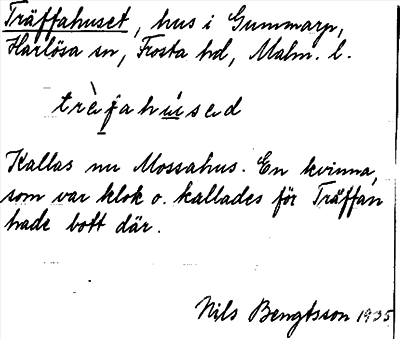 Träffahuset, hus i Gummarp,
Harlösa sn, Frosta hd, Malm. l.
trèfahúsəd
Kallas nu Mossahus. En kvinna,
som var klok o. kallades för Träffan
hade bott där.
Nils Bengtsson 1935